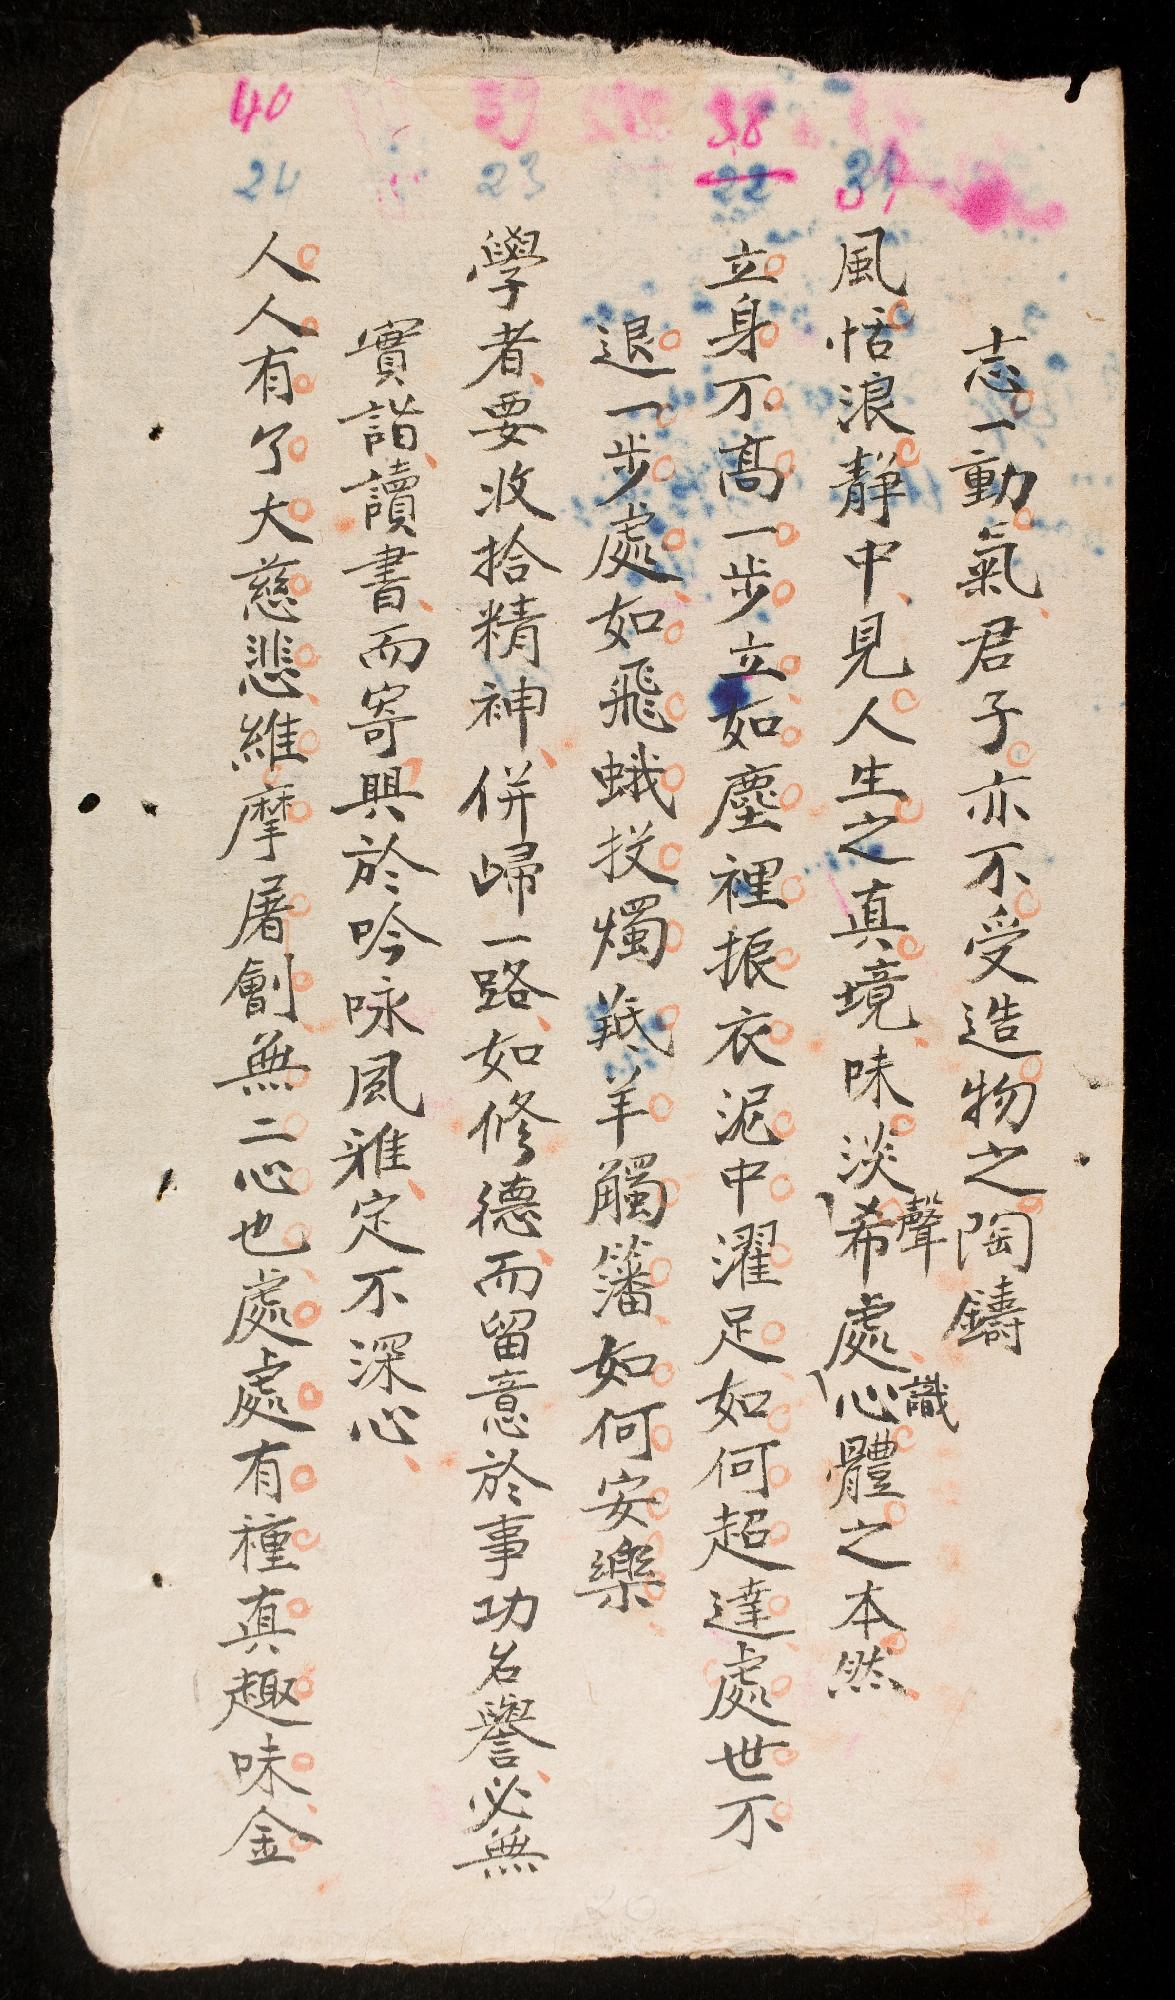 志一動氣君子亦不受造物之陶鑄
37
風恬浪靜中見人生之真境味淡希處心體之本然
聲
識
38
22
立身不高一步立如塵裡振衣泥中濯足如何超達處世不
退一步處如飛蛾投燭羝羊觸籓如何安樂
39
23
學者要收拾精神併歸一路如修德而留意於事功名譽必無
實詣讀書而寄興於吟咏風雅定不深心
40
24
人人有个大慈悲維摩屠劊無二心也處處有種真趣味金
20